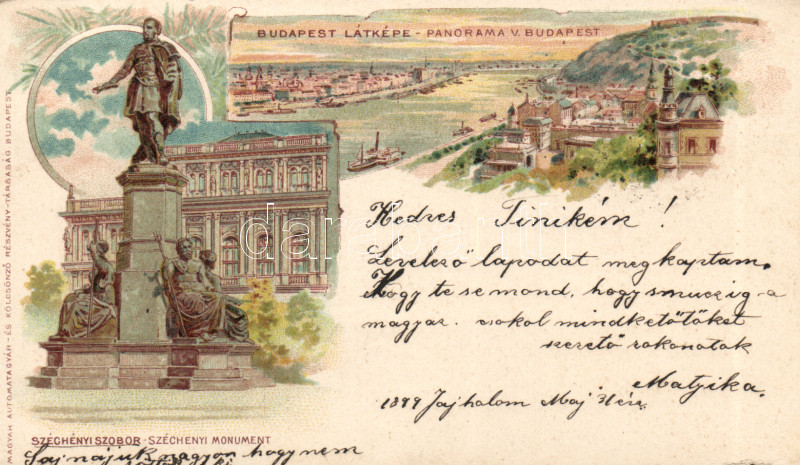 BUDAPEST LÁTKÉPE - PANORAMA V. BUDAPEST
MAGYAR AUTOMATAGYÁR- ÉS KÖLCSÖNZŐ RÉSZVÉNY-TÁRSASÁG BUDAPEST
darabanth
Kedves Tinikém!
Levelező lapodat megkaptam.
Hogy te se mond, hogy smuczig a
magyar. csokol mindketőtöket
szerető rokonatok
Matyika.
1899 Jajhalom Maj
SZÉCHÉNYI SZOBOR - SZÉCHENYI MONUMENT
Sajnájuk nagyon hogy nem